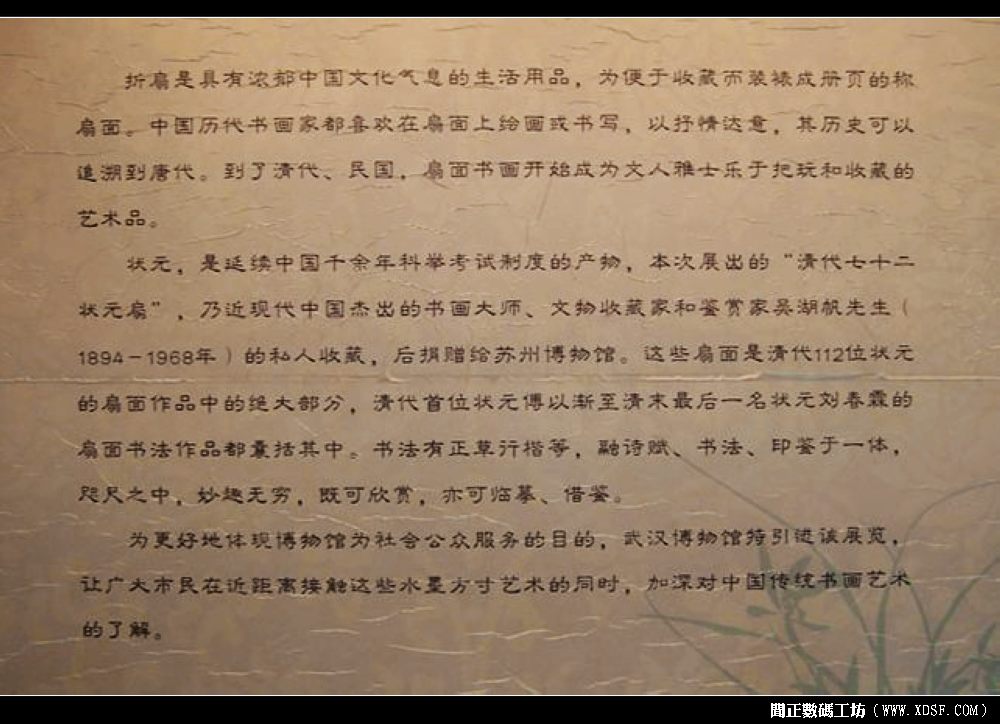 折扇是具有浓郁中国文化气息的生活用品，为便于收藏而装裱成册页的称
扇面。中国历代书画家都喜欢在扇面上绘画或书写，以抒情达意，其历史可以
追溯到唐代。到了清代、民国，扇面书画开始成为文人雅士乐于把玩和收藏的
艺术品。
状元，是延续中国千余年科举考试制度的产物，本次展出的“清代七十二
状元扇”，乃近现代中国杰出的书画大师、文物收藏家和鉴赏家吴湖帆先生（
1894－1968年）的私人收藏，后捐赠给苏州博物馆。这些扇面是清代112位状元
的扇面作品中的绝大部分，清代首位状元傅以渐至清末最后一名状元刘春霖的
扇面书法作品都囊括其中。书法有正草行楷等，融诗赋、书法、印鉴于一体，
咫尺之中，妙趣无穷，既可欣赏，亦可临摹、借鉴。
为更好地体现博物馆为社会公众服务的目的，武汉博物馆特引进该展览，
让广大市民在近距离接触这些水墨方寸艺术的同时，加深对中国传统书画艺术
的了解。
閒正數碼工坊（WWW.XDSF.COM）